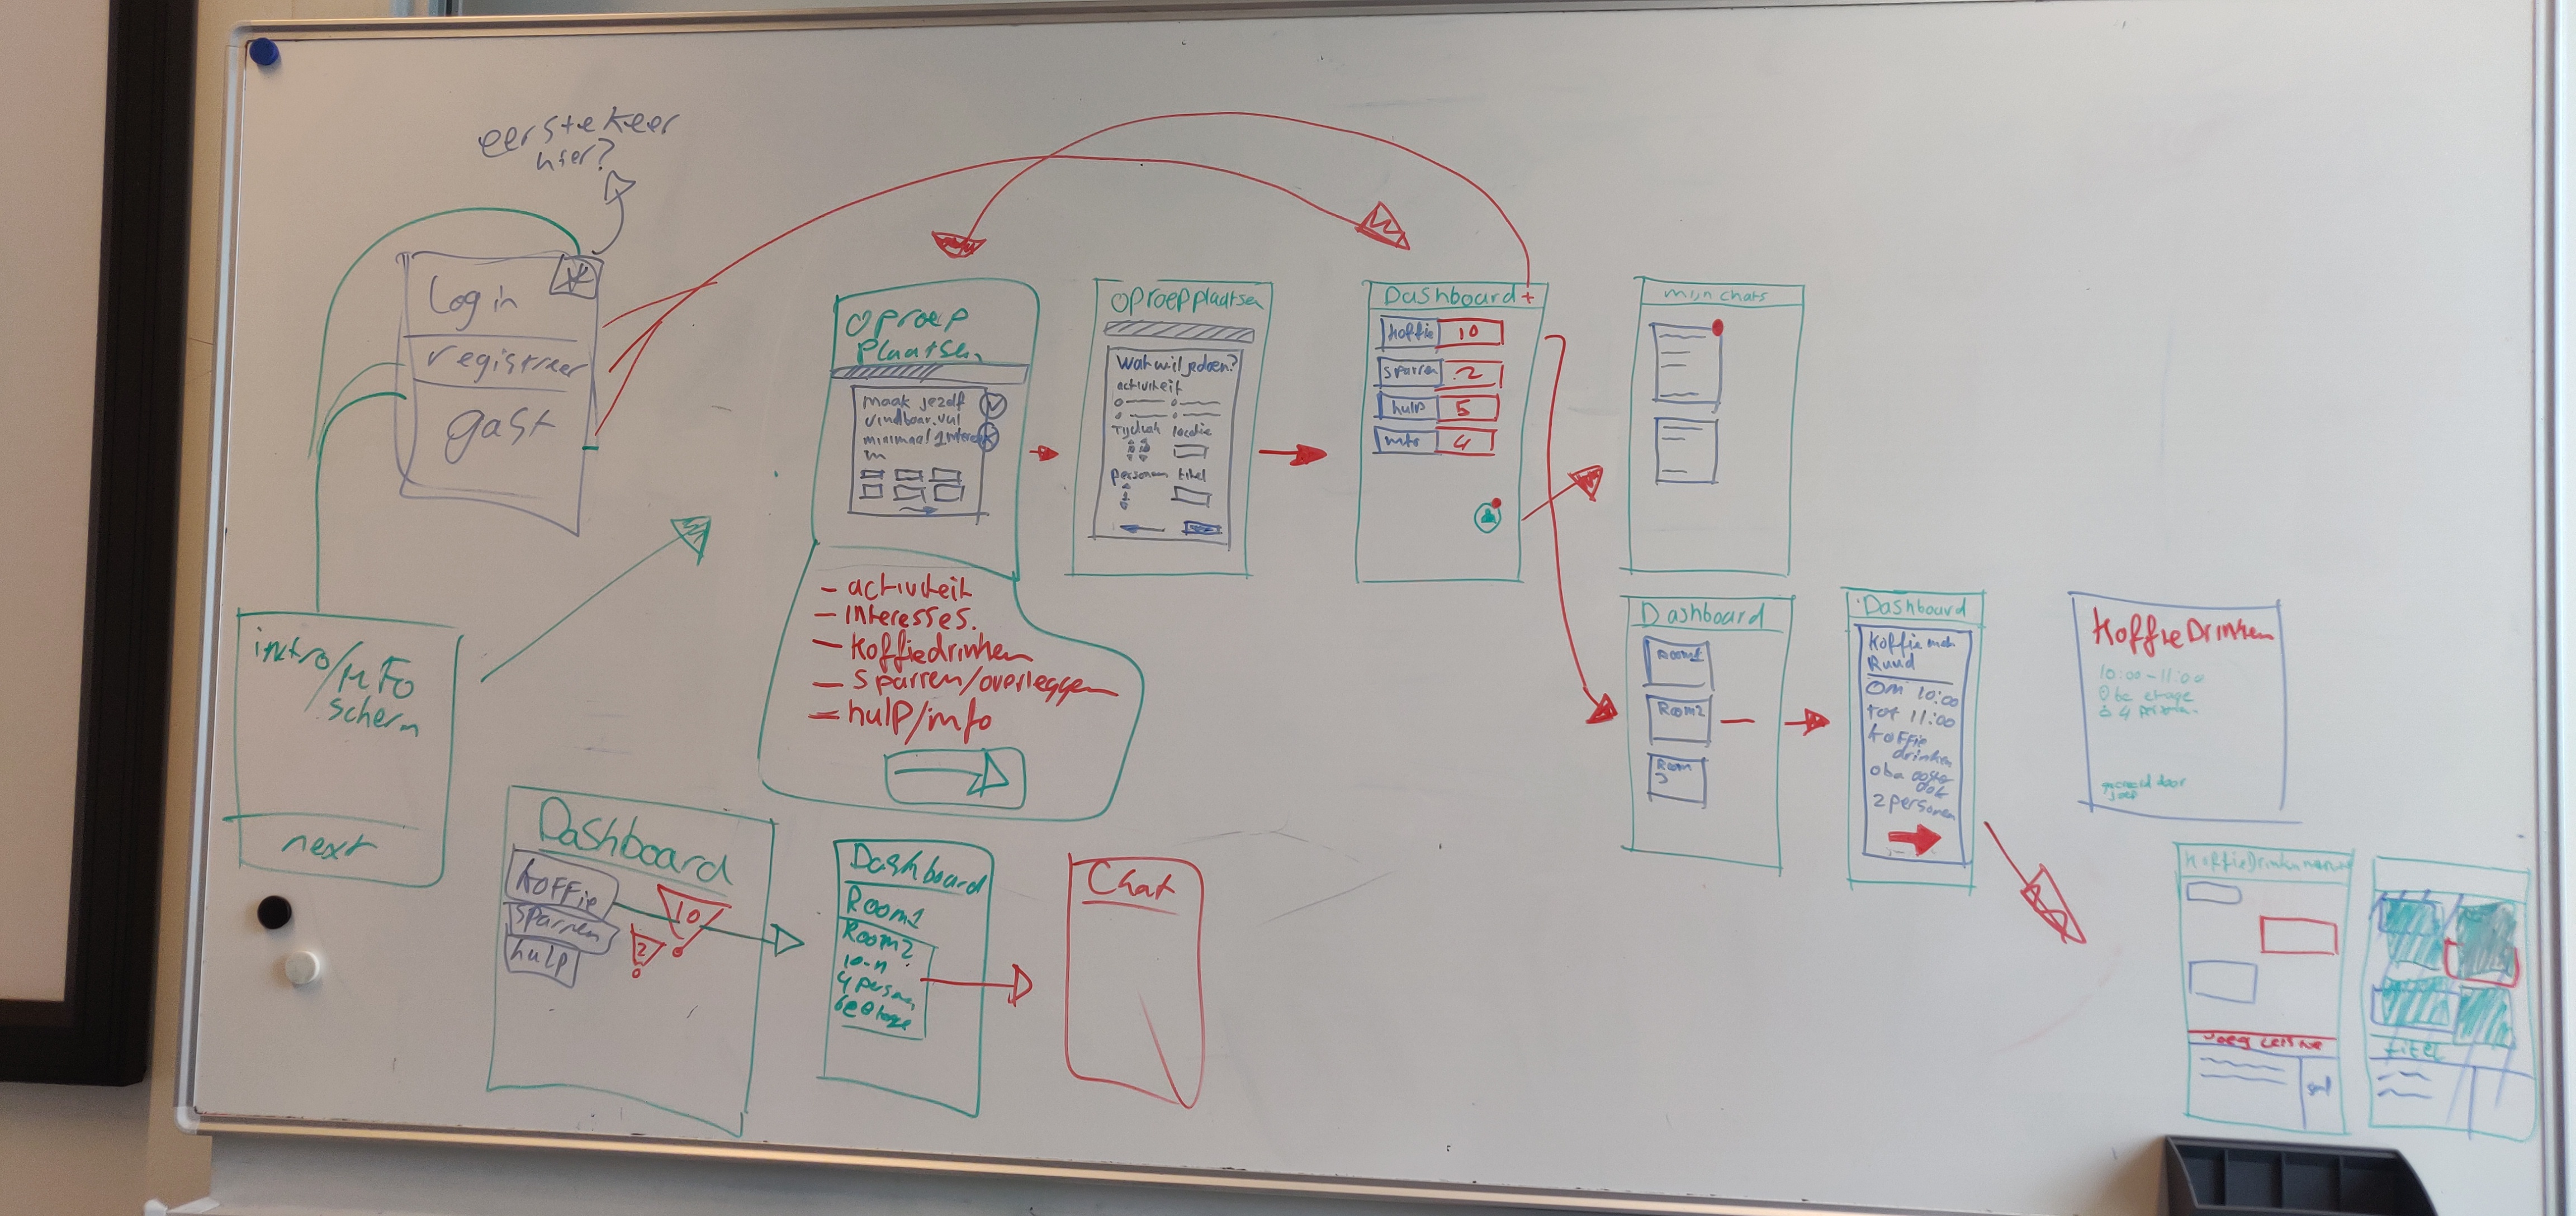 eerste keer
hier?
Log in
registreer
gast
intro/info
scherm
next
oproep
plaatsen
maak jezelf
vindbaar. vul
minimaal 1 interesse
in
- activiteit
- interesses.
- koffiedrinken
- sparren/overleggen
- hulp/info
oproep plaatsen
Wat wil je doen?
activiteit
Tijdvak locatie
personen titel
1
Dashboard +
koffie 10
sparren 2
hulp 5
info 4
mijn chats
Dashboard
Room1
Room2
Room
3
Dashboard
Koffie met
Ruud
Om 10:00
tot 11:00
koffie
drinken
oba ooster
dok
2 personen
KoffieDrinken
10:00-11:00
4 personen
gecreëerd door
joep
Dashboard
koffie
sparren
hulp
10
2
Dashboard
Room1
Room2
10-11
4 personen
6e etage
Chat
titel